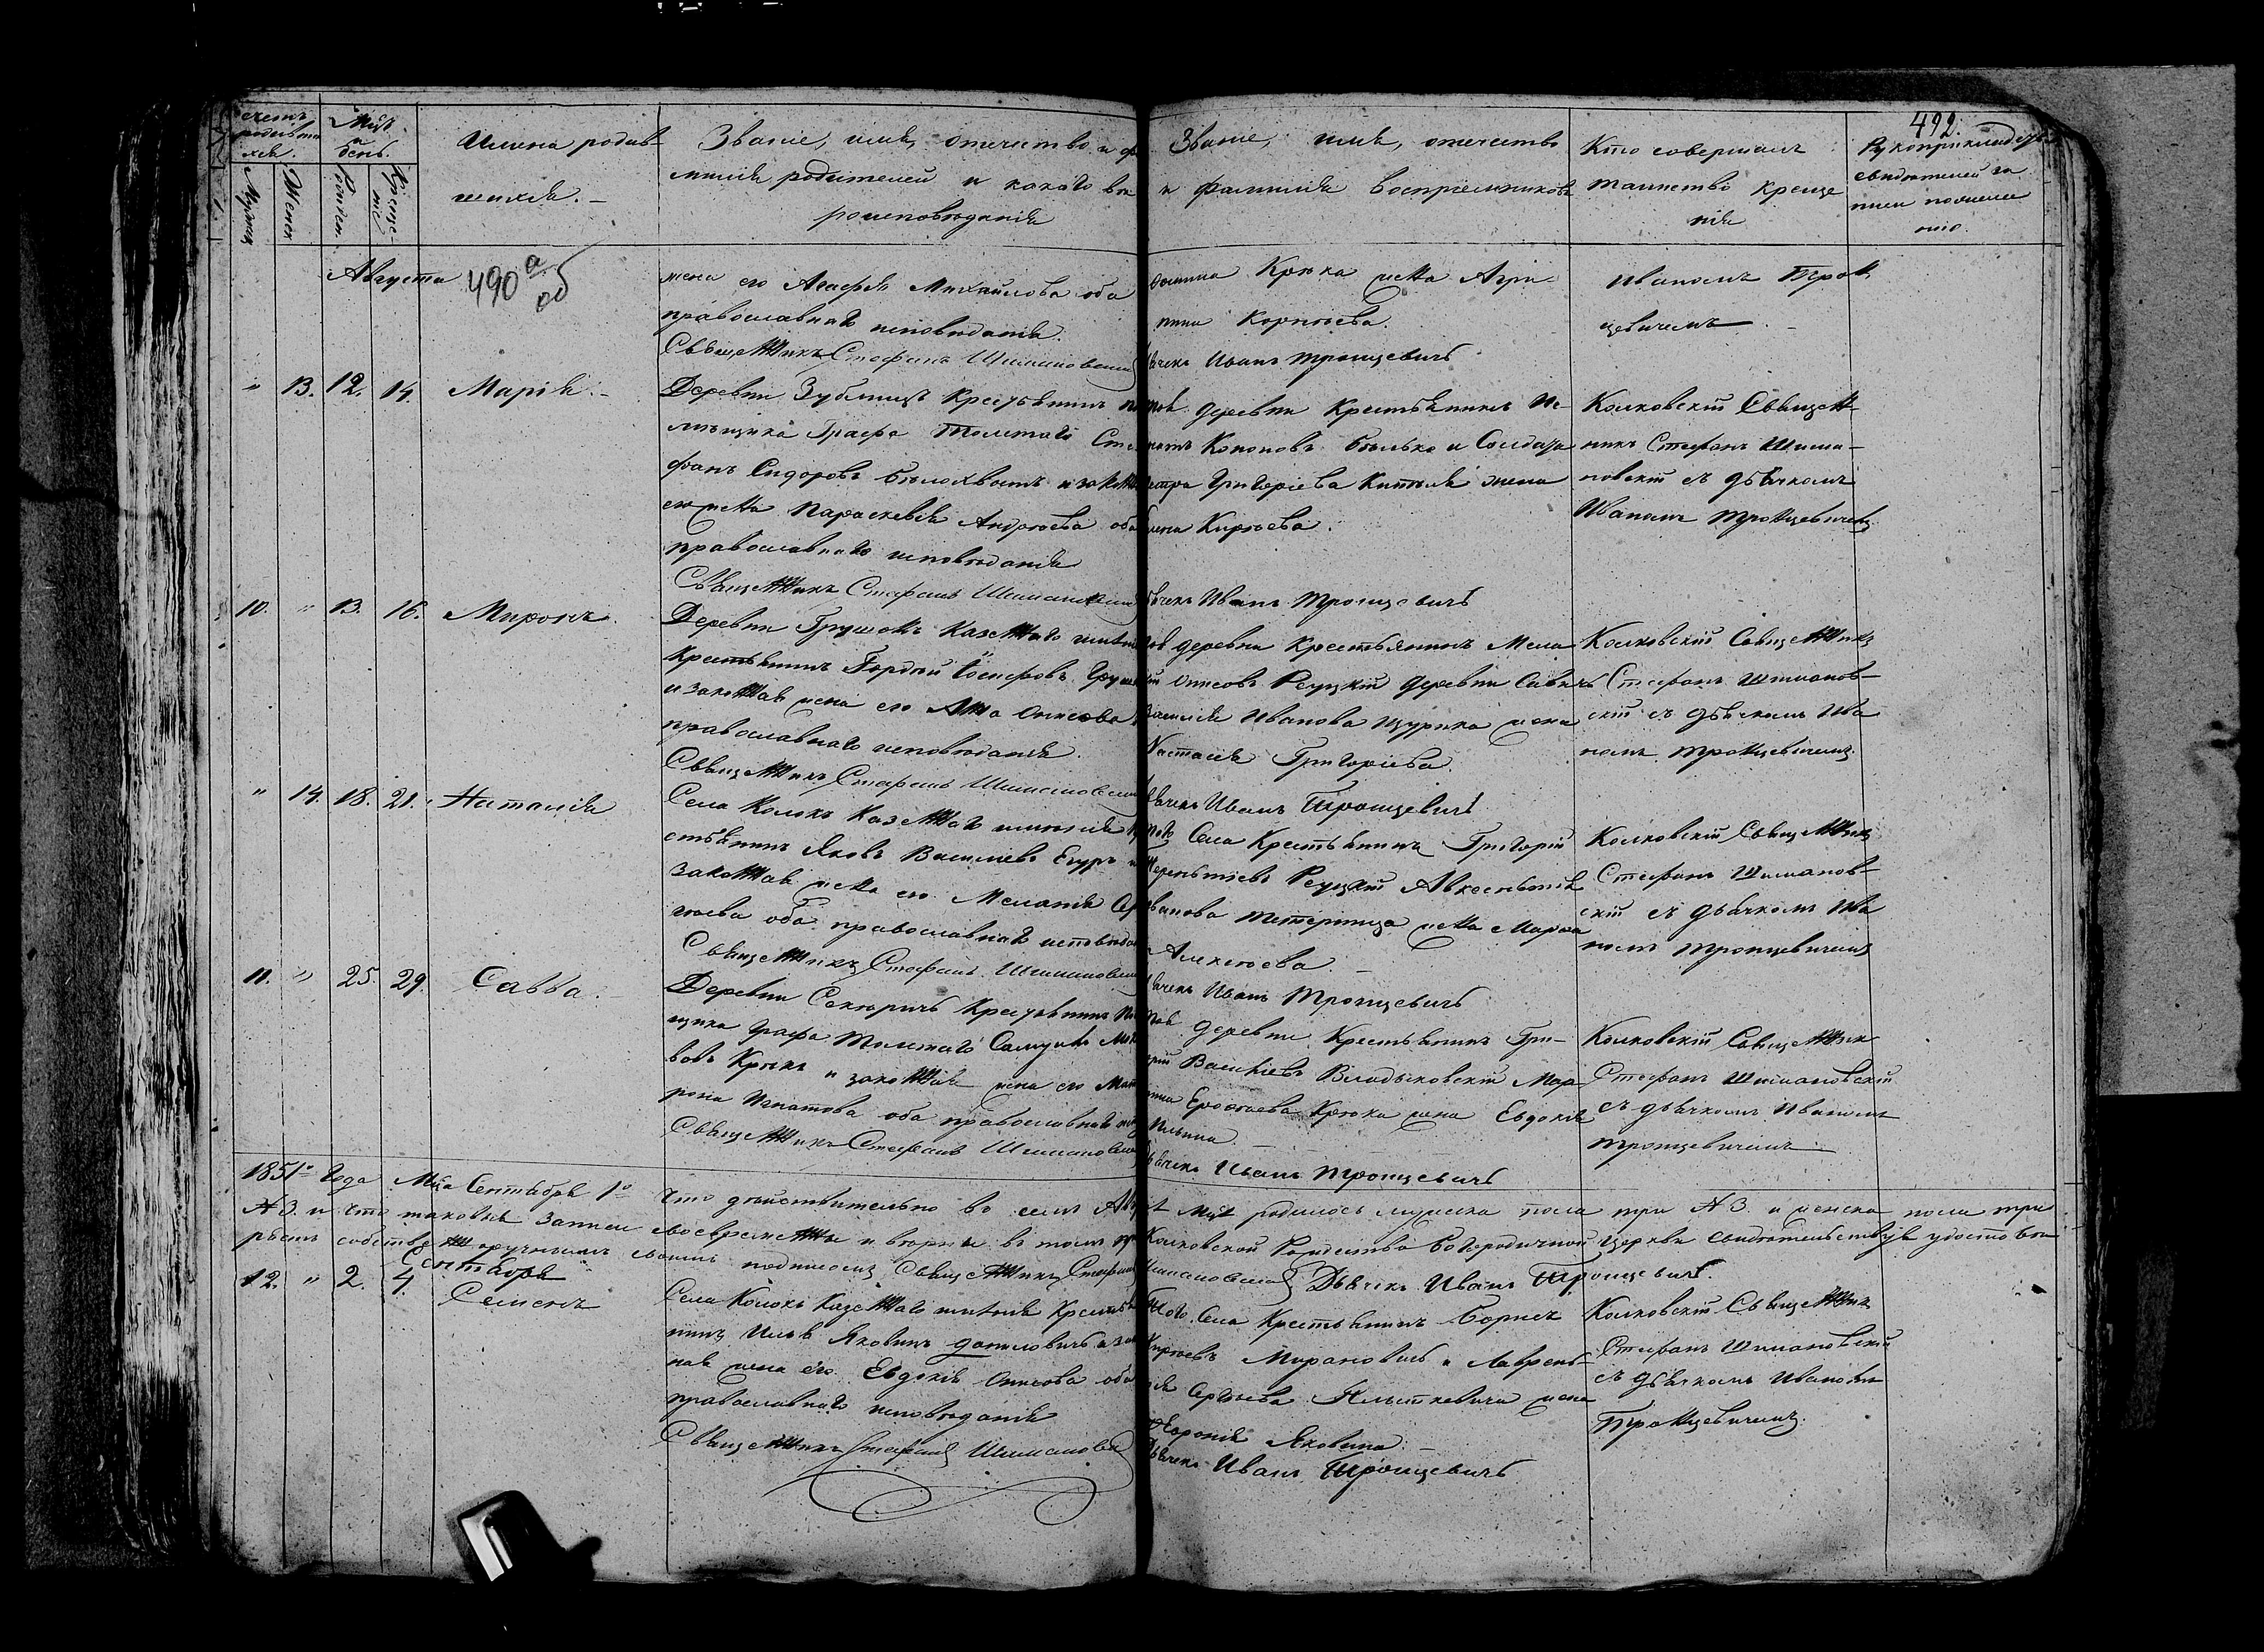 492.
счетъ родившихся.
Мѣсц. и день.
Мужеск
Женск
Рожден.
Крещенiе
Имена родив-
шихся. –
Званiе, имя, отечество и фа
милiя родителей и какого вѣ
роисповѣданiя
Званiе, имя, отечество
и фамилiя воспрiемниковъ
Кто совершалъ
таинство креще
нiя
Рукоприкладство
свидетелей за
писи по желан
iю.
Августа 490 а об
жена его Агафiя Михайлова оба
православнаго исповѣданiя.
Священникъ Стефанъ Шимановскiй
Крюка жена Агри-
пина Корнѣева.
Дьячекъ Иванъ Тронцевичъ
Иваномъ Трон
цевичемъ. –
" 13. 12. 14. Марiя. –
Деревни Зубляищъ Крестьянинъ по
мѣщика Графа Толстаго Сте
фанъ Сидоровъ Бѣлохвостъ и законн
ая жена Параскевiя Андрѣева оба
православнаго исповѣданiя
Священникъ Стефанъ Шимановскiй
той деревни Крестьянинъ Иг-
натъ Кононовъ Бѣлько и Солдата
Петра Григорiева Китыля жена
Кирѣева.
Дьячекъ Иванъ Тронцевичъ
Колковскiй Священ-
никъ Стефанъ Шима-
новскiй съ дьячкомъ
Иваномъ Тронцевичемъ
10. " 13. 16. Миронъ.
Деревни Грушокъ Казеннаго имѣнiя
Крестьянинъ Гордiй Iосифовъ
и законная жена его Анна Онисова
православнаго исповѣданiя.
Священникъ Стефанъ Шимановскiй
той деревни Крестьянинъ Мела
Онисовъ Рецкiй деревни Савичъ
Василiя Иванова Щурика жена
Настасiя Григорiева.
Дьячекъ Иванъ Тронцевичъ
Колковскiй Священникъ
Стефанъ Шиманов-
скiй съ дьячкомъ Ива
номъ Тронцевичемъ.
" 14. 18. 21. Наталiя
Села Колокъ Казеннаго имѣнiя Кре
стьянинъ Яковъ Василiевъ Егуръ и
законная жена его Меланiя Сер
гѣева оба православнаго исповѣдан
Священникъ Стефанъ Шимановскiй
того Села Крестьянинъ Григорiй
Терентiевъ Рецкiй Авксентiя
Иванова Тетерица жена Марфа
Алексѣева. –
Дьячекъ Иванъ Тронцевичъ
Колковскiй Священникъ
Стефанъ Шиманов-
скiй съ дьячкомъ Ива
номъ Тронцевичемъ
11. " 25. 29. Савва. –
Деревни Секюричъ Крестьянинъ По
щика Графа Толстаго Самуилъ
вовъ Крюкъ и законная жена его Мат
рона Игнатова оба православнаго
Священникъ Стефанъ Шимановскiй
той деревни Крестьянинъ Гри-
горiй Василiевъ Владыковскiй Мар-
тина Ерофѣева Крюка жена Евдокiя
Ильина. –
Дьячекъ Иванъ Тронцевичъ
Колковскiй Священник
Стефанъ Шимановскiй
съ дьячкомъ Иваномъ
Тронцевичемъ
1851го Года Мца Сентября 1го Что дѣйствительно въ семъ Авгу мцѣ родилось мужеска пола три №3. и женска пола три
№3. и что таковыя записи своевременны и вѣрны въ томъ Колковской Рождество Богородичной Церкви свидѣтельствуя удостовѣ
ряемъ собственноручнымъ своимъ подписомъ Священникъ Стефанъ Шимановскiй Дьячекъ Иванъ Тронцевичъ.
Сентября
12. " 2. 4. Семенъ
Села Колокъ Казеннаго имѣнiя Крестья
нинъ Илья Яковинъ Даниловичъ и зако
ная жена его Евдокiя Онисова оба
православнаго исповѣданiя
Священникъ Стефанъ Шимановскiй
Того Села Крестьянинъ Борисъ
Кирѣевъ Мирановичъ и Лаврент-
iя Сергѣева жена
Яковина. –
Дьячекъ Иванъ Тронцевичъ
Колковскiй Священникъ
Стефанъ Шимановскiй
съ дьячкомъ Иваномъ
Тронцевичемъ.